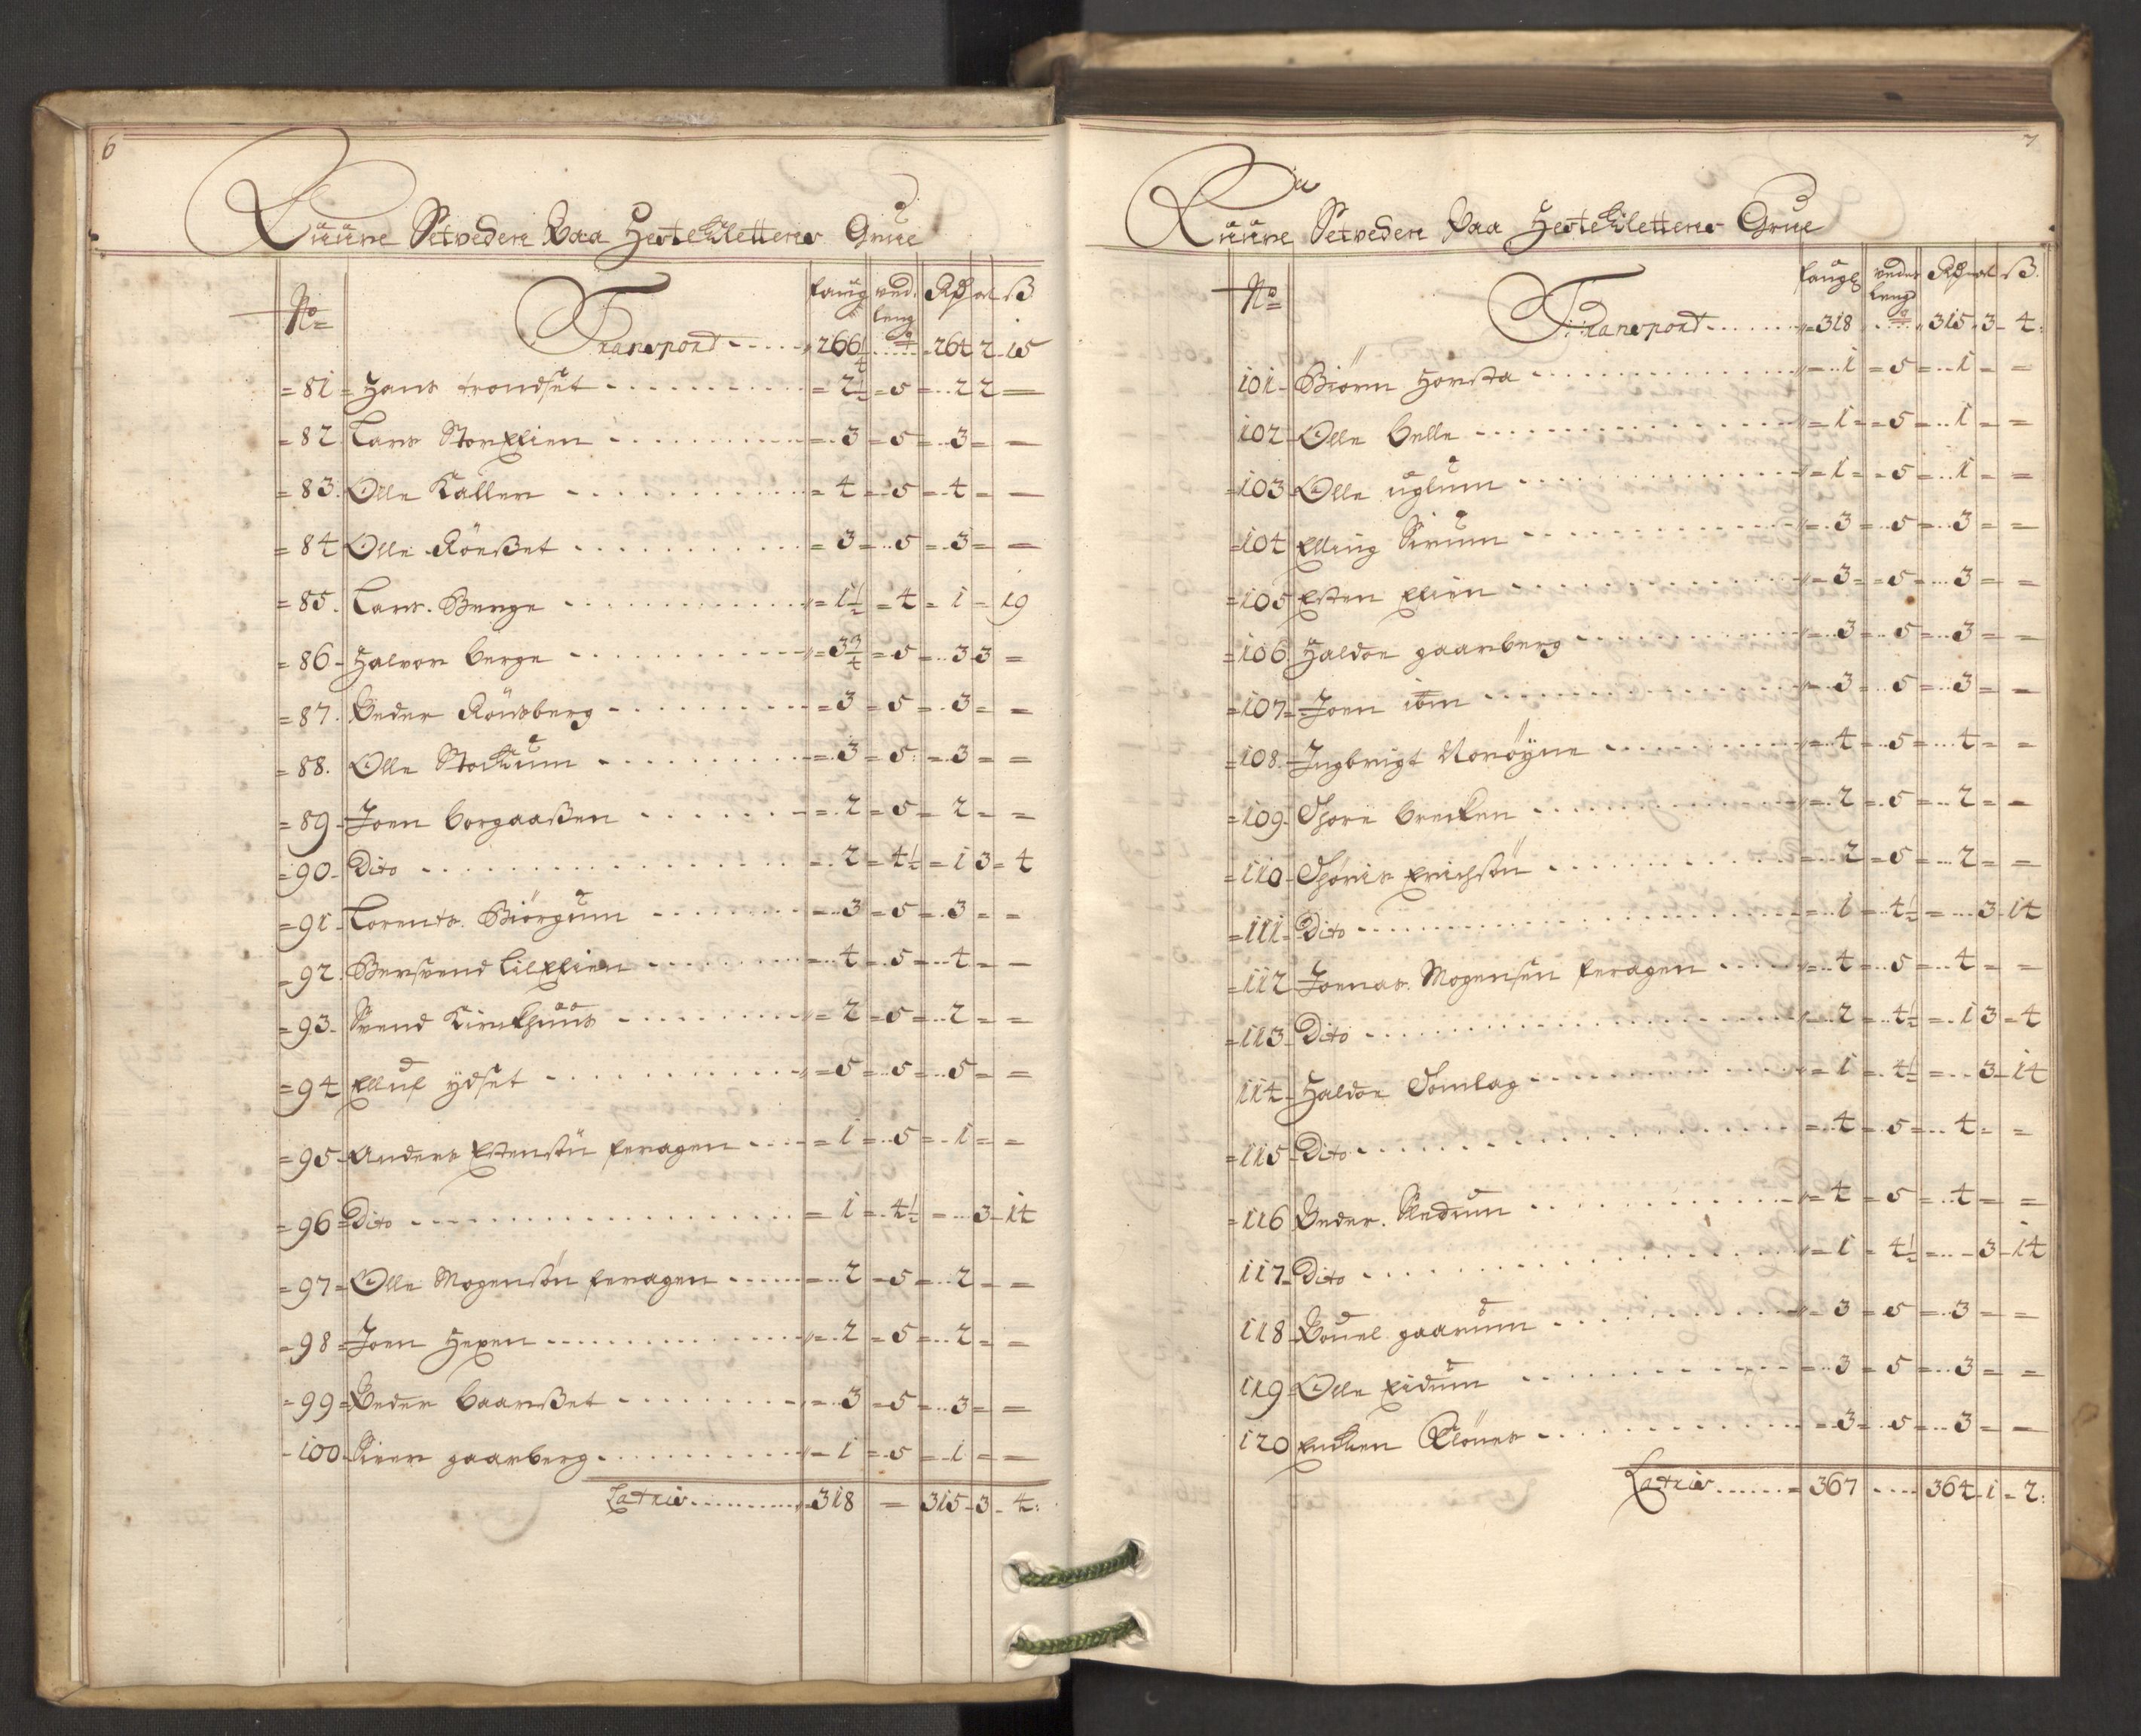 6
Ruüne Setvedere Paa Hestekletteres Grue
No
faug ved. Rd ort ß
leng
Transport 266¼ 264 2 15
81 Hans trondset 2½ 5 2 2
82 Lars Storelien 3 5 3
83 Olle Kaller 4 5 4
84 Olle Rönßet 3 5 3
85 Lars Berge 1½ 4 1 19
86 Halvor berge 3¾ 5 3 3
87 Peder Rönsberg 3 5 3
88 Olle Stockum 3 5 3
89 Joen borgaaßen 2 5 2
90 Dito 2 4½ 1 3 4
91 Lorents Biörgum 3 5 3
92 Bersvend lilelien 4 5 4
93 Svend Kirkhuus 2 5 2
94 Elluf ydset 5 5 5
95 Anders Estensön feragen 1 5 1
96 Dito 1 4½ 3 14
97 Olle Mogensön feragen 2 5 2
98 Joen Hexen 2 5 2
99 Peder baarßet 3 5 3
100 Siver gaarberg 1 5 1
Latris 318 315 3 4
7
Ruüne Setvedere Paa Hestekletteres Grue
No
faug veder Rd ort ß
lengd
Transport 318 315 3 4
101 Biörn Horsta 1 5 1
102 Olle belle 1 5 1
103 Olle uglum 1 5 1
104 Elling Sirum 3 5 3
105 Esten Elien 3 5 3
106 Haldoe gaarberg 3 5 3
107 Joen ibm 3 5 3
108 Ingbrigt Noröyne 4 5 4
109 Thore brecken 2 5 2
110 Thöris Erichsön 2 5 2
111 Dito 1 4½ 3 14
112 Joenas Mogensen feragen 4 5 4
113 Dito 2 4½ 1 3 4
114 Haldoe Tomlag 1 4½ 3 14
115 Dito 4 5 4
116 Peder Sledum 4 5 4
117 Dito 1 4½ 3 14
118 Pouel gaarum 3 5 3
119 Olle Eidum 3 5 3
120 Encken Klönes 3 5 3
Latris 367 364 1 2